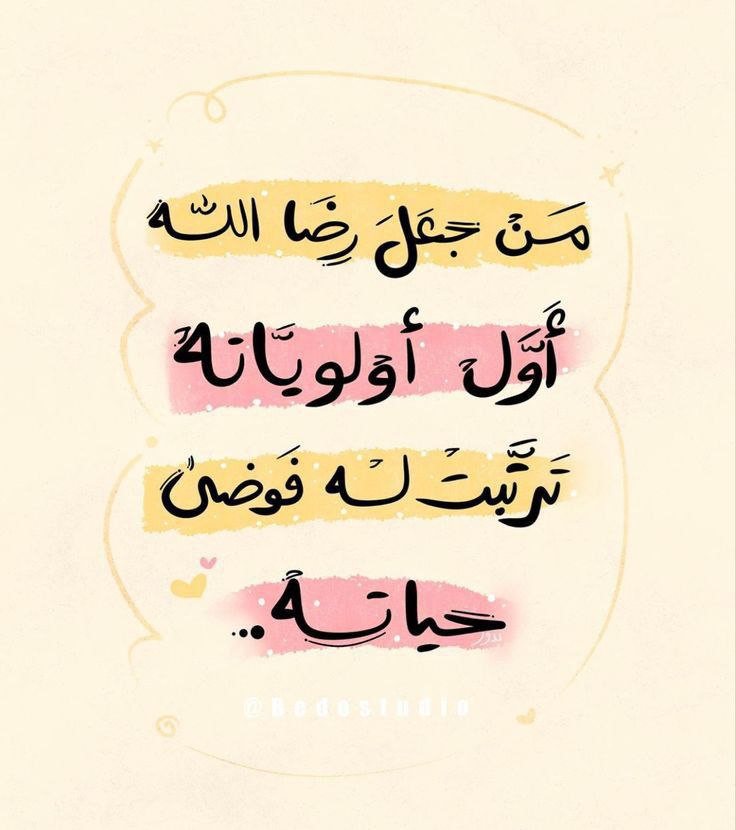 مَنْ جَعَلَ رِضَا اللّٰه
أَوَّلَ أوْلوِيَّاتهُ
تَرتَّبتْ لهُ فَوضىٰ
حياتهُ ..
@Bedostudio